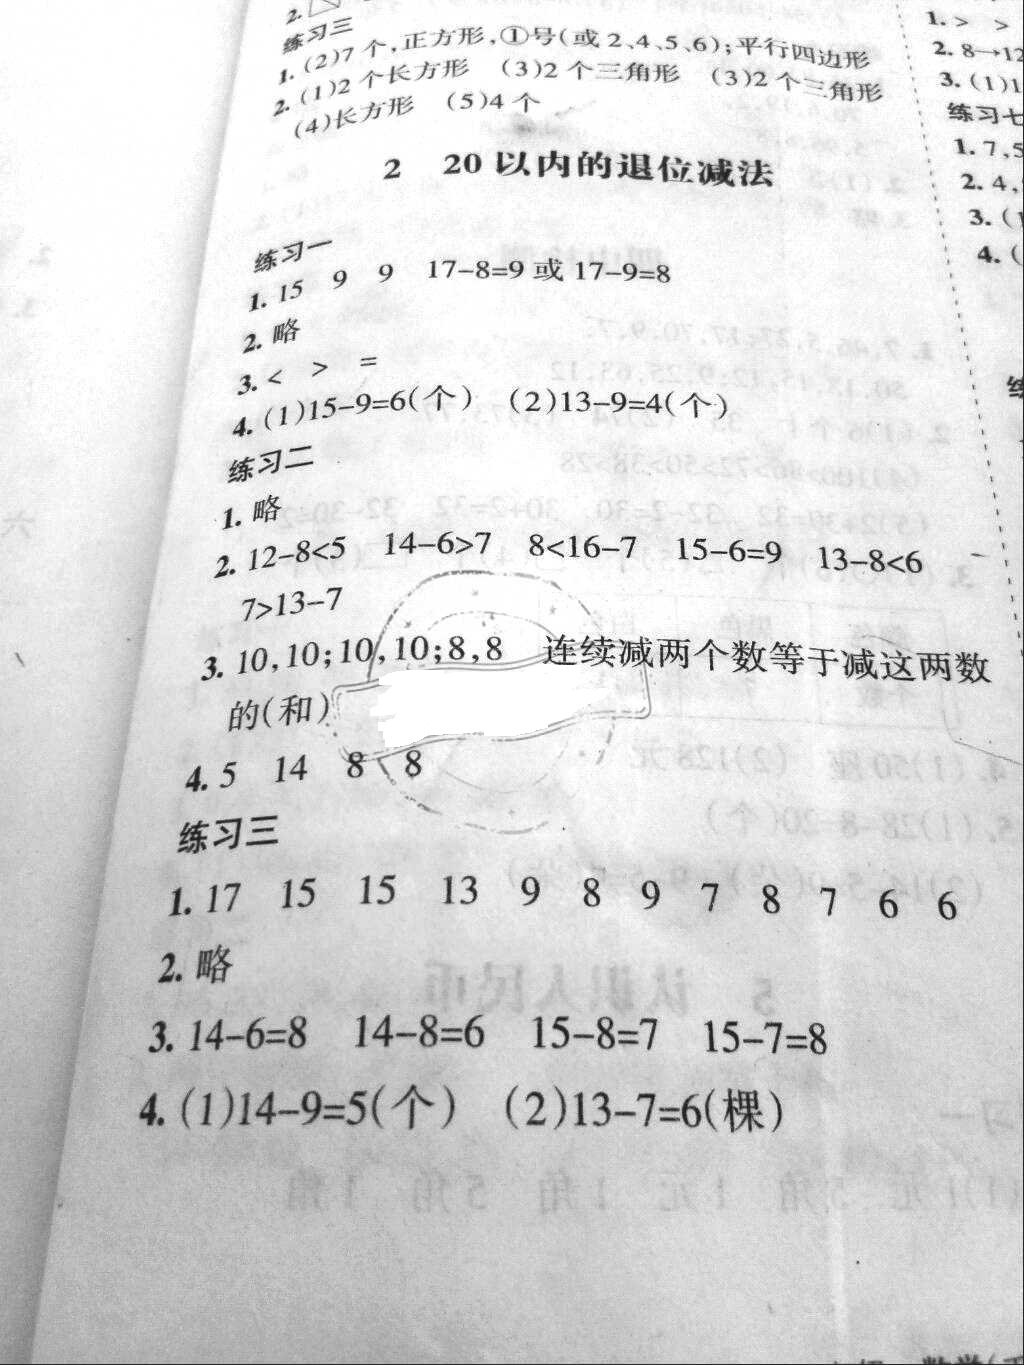 2.
练习三
1. (2)7 个,正方形,①号(或 2、4、5、6);平行四边形
2. (1)2 个长方形 (3)2 个三角形 (3)2 个三角形
(4)长方形 (5)4 个
2 20 以内的退位减法
练习一
1. 15 9 9 17-8=9 或 17-9=8
2. 略
3. < > =
4. (1)15-9=6(个) (2)13-9=4(个)
练习二
1. 略
2. 12-8<5 14-6>7 8<16-7 15-6=9 13-8<6
7>13-7
3. 10,10;10,10;8,8 连续减两个数等于减这两数
的(和)
4. 5 14 8 8
练习三
1. 17 15 15 13 9 8 9 7 8 7 6 6
2. 略
3. 14-6=8 14-8=6 15-8=7 15-7=8
4. (1)14-9=5(个) (2)13-7=6(棵)
1. > >
2. 8→12
3. (1)1
练习七
1. 7,5
2. 4,
3. (1
4. (